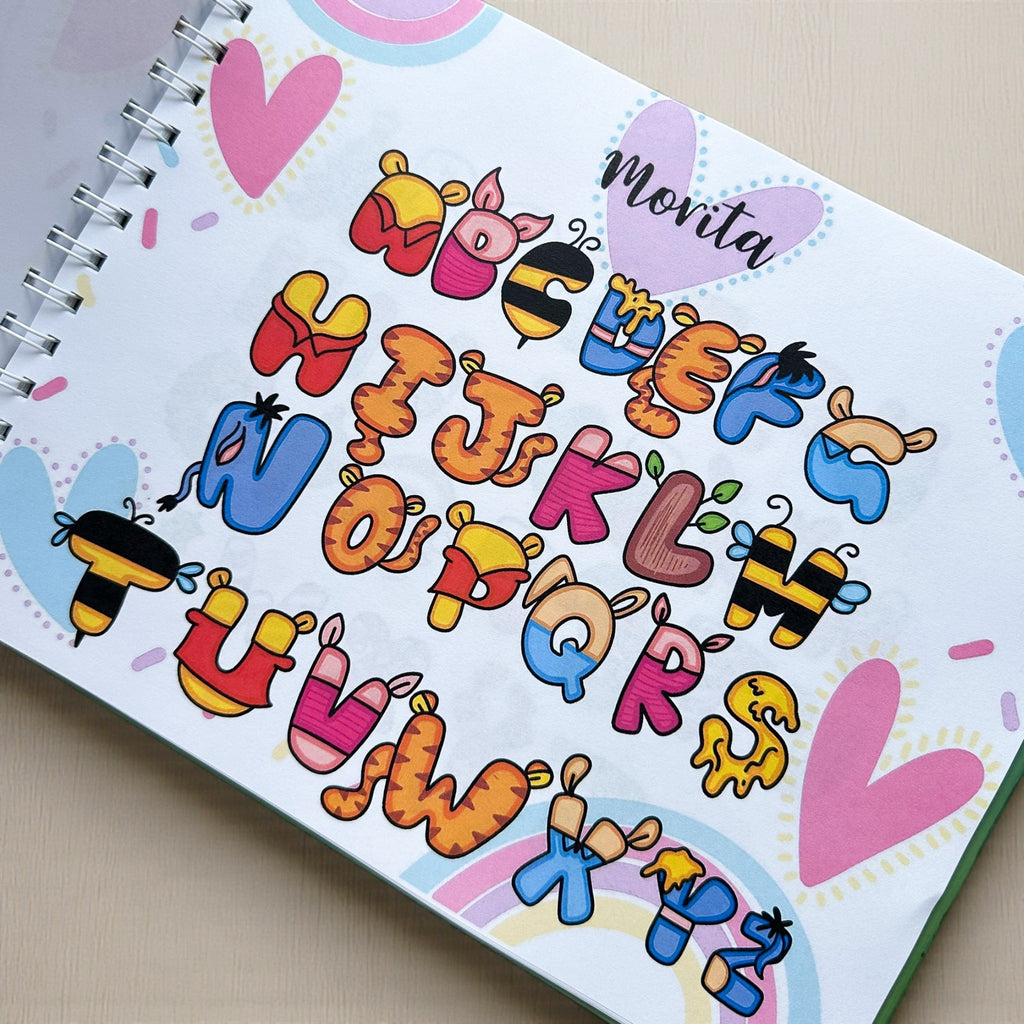 Morita
A B C D E F G
H I J K L M
N O P Q R S
T U V W X Y Z